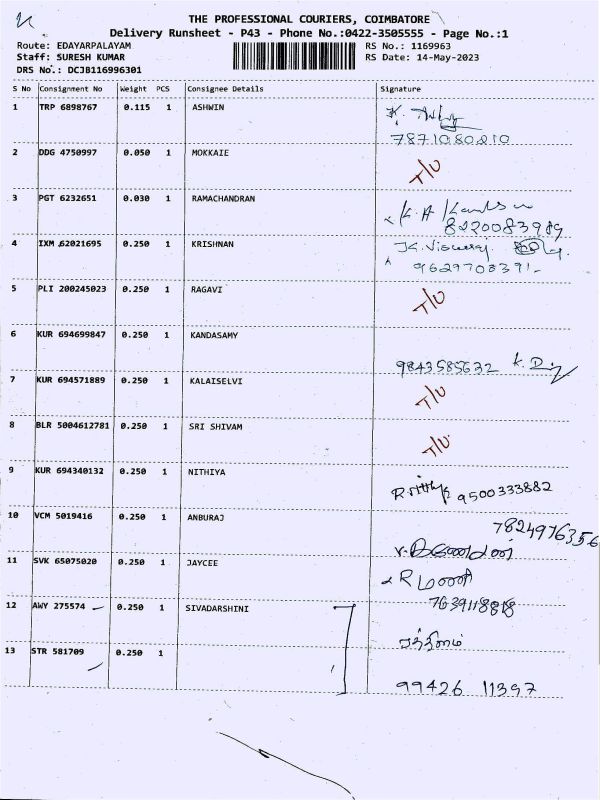 THE PROFESSIONAL COURIERS, COIMBATORE
Delivery Runsheet - P43 - Phone No.:0422-3505555 - Page No.:1
Route: EDAYARPALAYAM RS No.: 1169963
Staff: SURESH KUMAR RS Date: 14-May-2023
DRS No.: DCJB116996301
S No Consignment No Weight PCS Consignee Details Signature
1 TRP 6898767 0.115 1 ASHWIN
7871080210
2 DDG 4750997 0.050 1 MOKKAIE T/U
3 PGT 6232651 0.030 1 RAMACHANDRAN
8220083989
4 IXM 62021695 0.250 1 KRISHNAN
9629708391-
5 PLI 200245023 0.250 1 RAGAVI T/U
6 KUR 694699847 0.250 1 KANDASAMY
9843585632 K. D
7 KUR 694571889 0.250 1 KALAISELVI T/U
8 BLR 5004612781 0.250 1 SRI SHIVAM T/U
9 KUR 694340132 0.250 1 NITHIYA
9500333882
10 VCM 5019416 0.250 1 ANBURAJ 7824976356
11 SVK 65075020 0.250 1 JAYCEE
12 AWY 275574 0.250 1 SIVADARSHINI 7639118818
13 STR 581709 0.250 1
99426 11397